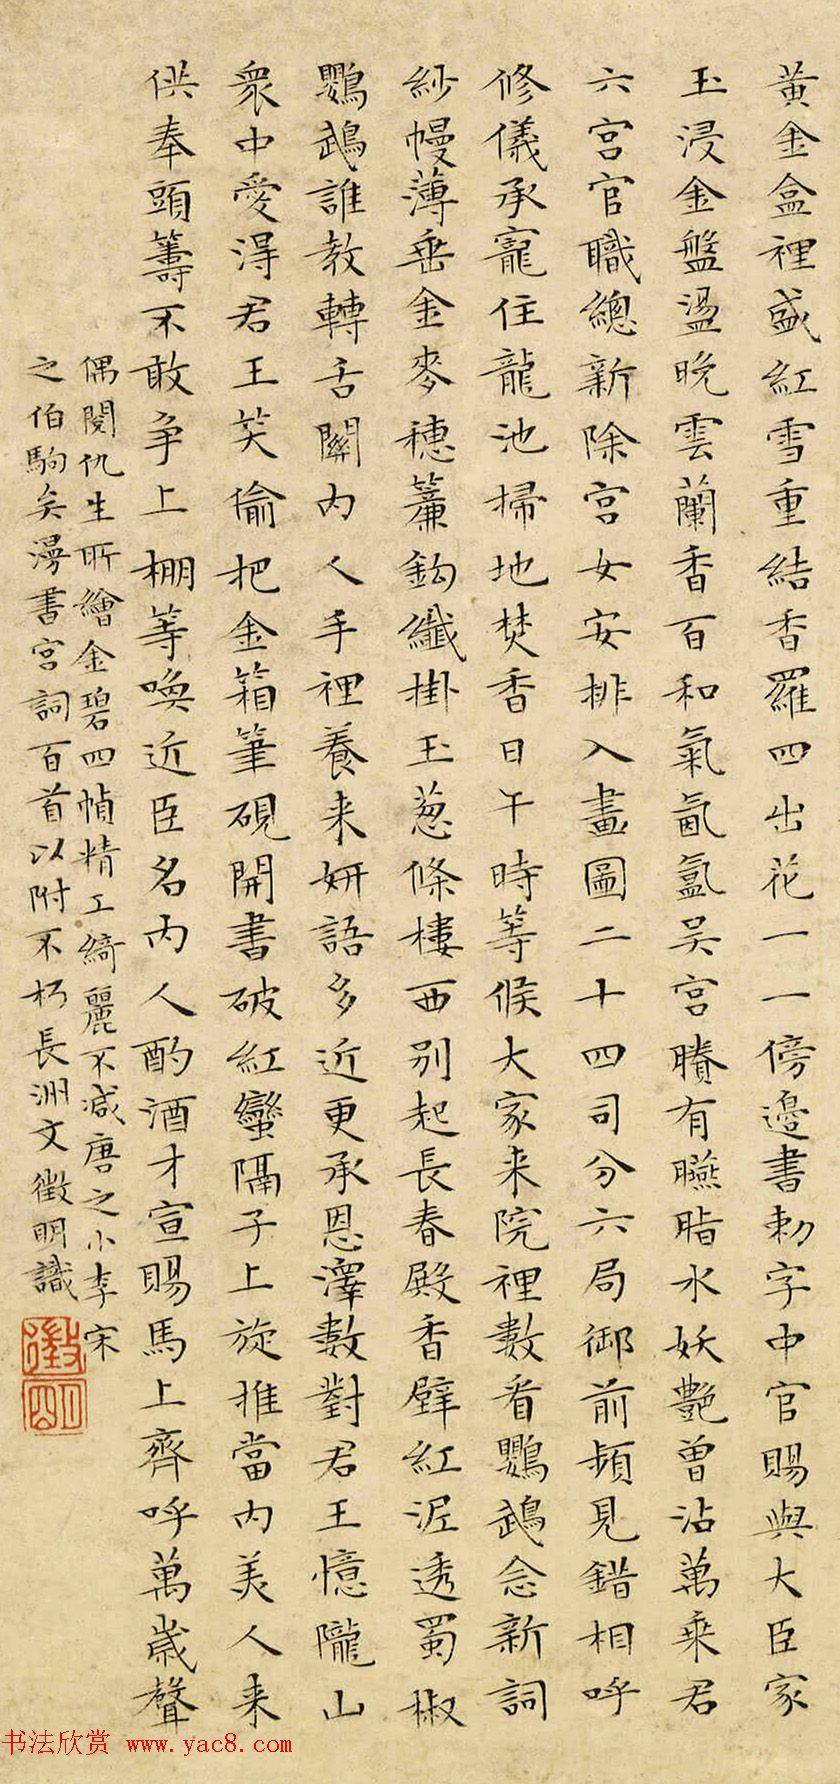 黃金盒裡盛紅雪重結香羅四出花一一傍邊書勑字中官賜與大臣家
玉浸金盤盪晚雲蘭香百和氣氤氳吳宮賸有臙脂水妖艷曾沾萬乘君
六宮官職總新除宮女安排入畫圖二十四司分六局御前頻見錯相呼
修儀承寵住龍池掃地焚香日午時等候大家来院裡數看鸚鵡念新詞
紗幔薄垂金麥穗簾鈎纖掛玉葱條樓西別起長春殿香壁紅泥透蜀椒
鸚鵡誰教轉舌關內人手裡養来妍語多近更承恩澤數對君王憶隴山
衆中愛得君王笑偷把金箱筆硯開書破紅蠻隔子上旋推當內美人来
供奉頭籌不敢爭上棚等喚近臣名內人酌酒才宣賜馬上齊呼萬歲聲
偶閱仇生所繪金碧四幀精工綺麗不減唐之小李宋
之伯駒矣漫書宮詞百首以附不朽長洲文徵明識
徵明
书法欣赏 www.yac8.com